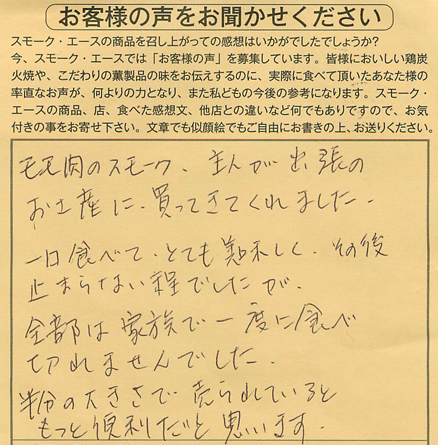 お客様の声をお聞かせください
スモーク・エースの商品を召し上がっての感想はいかがでしたでしょうか?
今、スモーク・エースでは「お客様の声」を募集しています。皆様においしい鶏炭
火焼や、こだわりの薫製品の味をお伝えするのに、実際に食べて頂いたあなた様の
率直なお声が、何よりの力となり、また私どもの今後の参考になります。スモーク・
エースの商品、店、食べた感想文、他店との違いなど何でもありですので、お気
付きの事をお寄せ下さい。文章でも似顔絵でもご自由にお書きの上、お送りください。
モモ肉のスモーク、主人が出張の
お土産に、買ってきてくれました。
一口食べて、とても美味しく、その後
止まらない程でしたが、
全部は家族で一度に食べ
切れませんでした。
半分の大きさで売られていると
もっと便利だと思います。